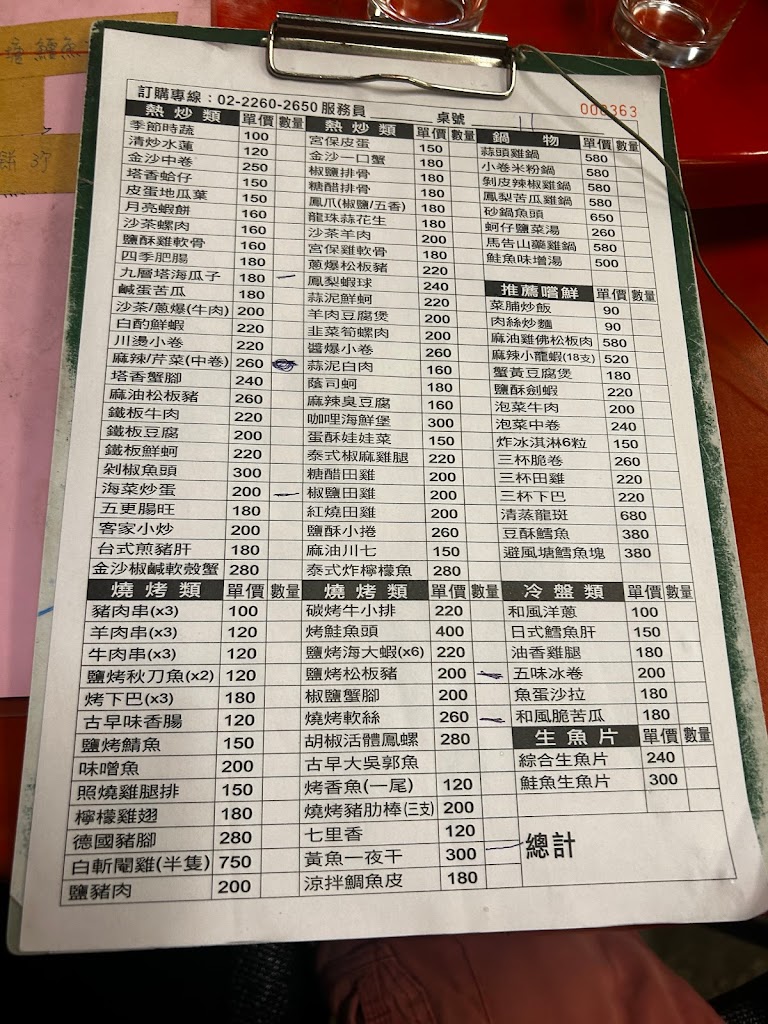 訂購專線：02-2260-2650 服務員 桌號 11
000363
熱炒類 單價 數量
季節時蔬 100
清炒水蓮 120
金沙中卷 250
塔香蛤仔 150
皮蛋地瓜葉 150
月亮蝦餅 160
沙茶螺肉 160
鹽酥雞軟骨 160
四季肥腸 180
九層塔海瓜子 180
鹹蛋苦瓜 180
沙茶/蔥爆(牛肉) 200
白酌鮮蝦 220
川燙小卷 220
麻辣/芹菜(中卷) 260
塔香蟹腳 240
麻油松板豬 260
鐵板牛肉 220
鐵板豆腐 200
鐵板鮮蚵 220
剁椒魚頭 300
海菜炒蛋 200
五更腸旺 180
客家小炒 200
台式煎豬肝 180
金沙椒鹹軟殼蟹 280
熱炒類 單價 數量
宮保皮蛋 150
金沙一口蟹 180
椒鹽排骨 180
糖醋排骨 180
鳳爪(椒鹽/五香) 180
龍珠蒜花生 180
沙茶羊肉 200
宮保雞軟骨 180
蔥爆松板豬 220
鳳梨蝦球 240
蒜泥鮮蚵 220
羊肉豆腐煲 200
韭菜筍螺肉 200
醬爆小卷 260
蒜泥白肉 160
蔭司蚵 180
麻辣臭豆腐 160
咖哩海鮮堡 300
蛋酥娃娃菜 150
泰式椒麻雞腿 220
糖醋田雞 200
椒鹽田雞 200
紅燒田雞 200
鹽酥小捲 260
麻油川七 150
泰式炸檸檬魚 280
鍋物 單價 數量
蒜頭雞鍋 580
小卷米粉鍋 580
剝皮辣椒雞鍋 580
鳳梨苦瓜雞鍋 580
砂鍋魚頭 650
蚵仔鹽菜湯 260
馬告山藥雞鍋 580
鮭魚味增湯 500
推薦嚐鮮 單價 數量
菜脯炒飯 90
肉絲炒麵 90
麻油雞佛松板肉 580
麻辣小龍蝦(18支) 520
蟹黃豆腐煲 180
鹽酥劍蝦 220
泡菜牛肉 200
泡菜中卷 240
炸冰淇淋6粒 150
三杯脆卷 260
三杯田雞 220
三杯下巴 220
清蒸龍斑 680
豆酥鱈魚 380
避風塘鱈魚塊 380
燒烤類 單價 數量
豬肉串(x3) 100
羊肉串(x3) 120
牛肉串(x3) 120
鹽烤秋刀魚(x2) 120
烤下巴(x3) 180
古早味香腸 120
鹽烤鯖魚 150
味噌魚 200
照燒雞腿排 150
檸檬雞翅 180
德國豬腳 280
白斬閹雞(半隻) 750
鹽豬肉 200
燒烤類 單價 數量
碳烤牛小排 220
烤鮭魚頭 400
鹽烤海大蝦(x6) 220
鹽烤松板豬 200
椒鹽蟹腳 200
燒烤軟絲 260
胡椒活體鳳螺 280
古早大吳郭魚
烤香魚(一尾) 120
燒烤豬肋棒(三支) 200
七里香 120
黃魚一夜干 300
涼拌鯛魚皮 180
冷盤類 單價 數量
和風洋蔥 100
日式鱈魚肝 150
油香雞腿 180
五味冰卷 200
魚蛋沙拉 180
和風脆苦瓜 180
生魚片 單價 數量
綜合生魚片 240
鮭魚生魚片 300
總計